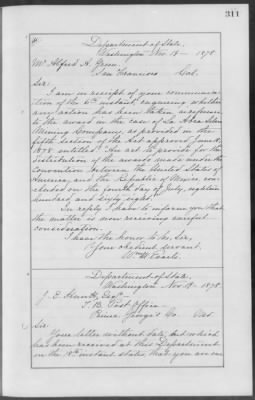 311
Department of State,
Washington Nov. 18 1878.
Mr Alfred A. Green,
San Francisco Cal.
Sir:
I am in receipt of your communica-
tion of the 6th instant, enquiring whether
any action has been taken in reference
to the award in the case of La Abra Silver
Mining Company, as provided in the
fifth section of the Act approved June 18,
1878 entitled "An act to provide for the
distribution of the awards made under the
Convention between the United States of
America, and the Republic of Mexico, con-
cluded on the fourth day of July, eighteen
hundred and sixty eight."
In reply I have to inform you that
the matter is now receiving careful
consideration.
I have the honor to be, Sir,
Your obedient servant,
Wm M Evarts.
Department of State.
Washington Nov. 18 1878.
J. E. Esq.
T. B. Post Office
Prince George's Co.
Sir
Your letter without date, but which
has been received at this Department
on the instant states that you are on